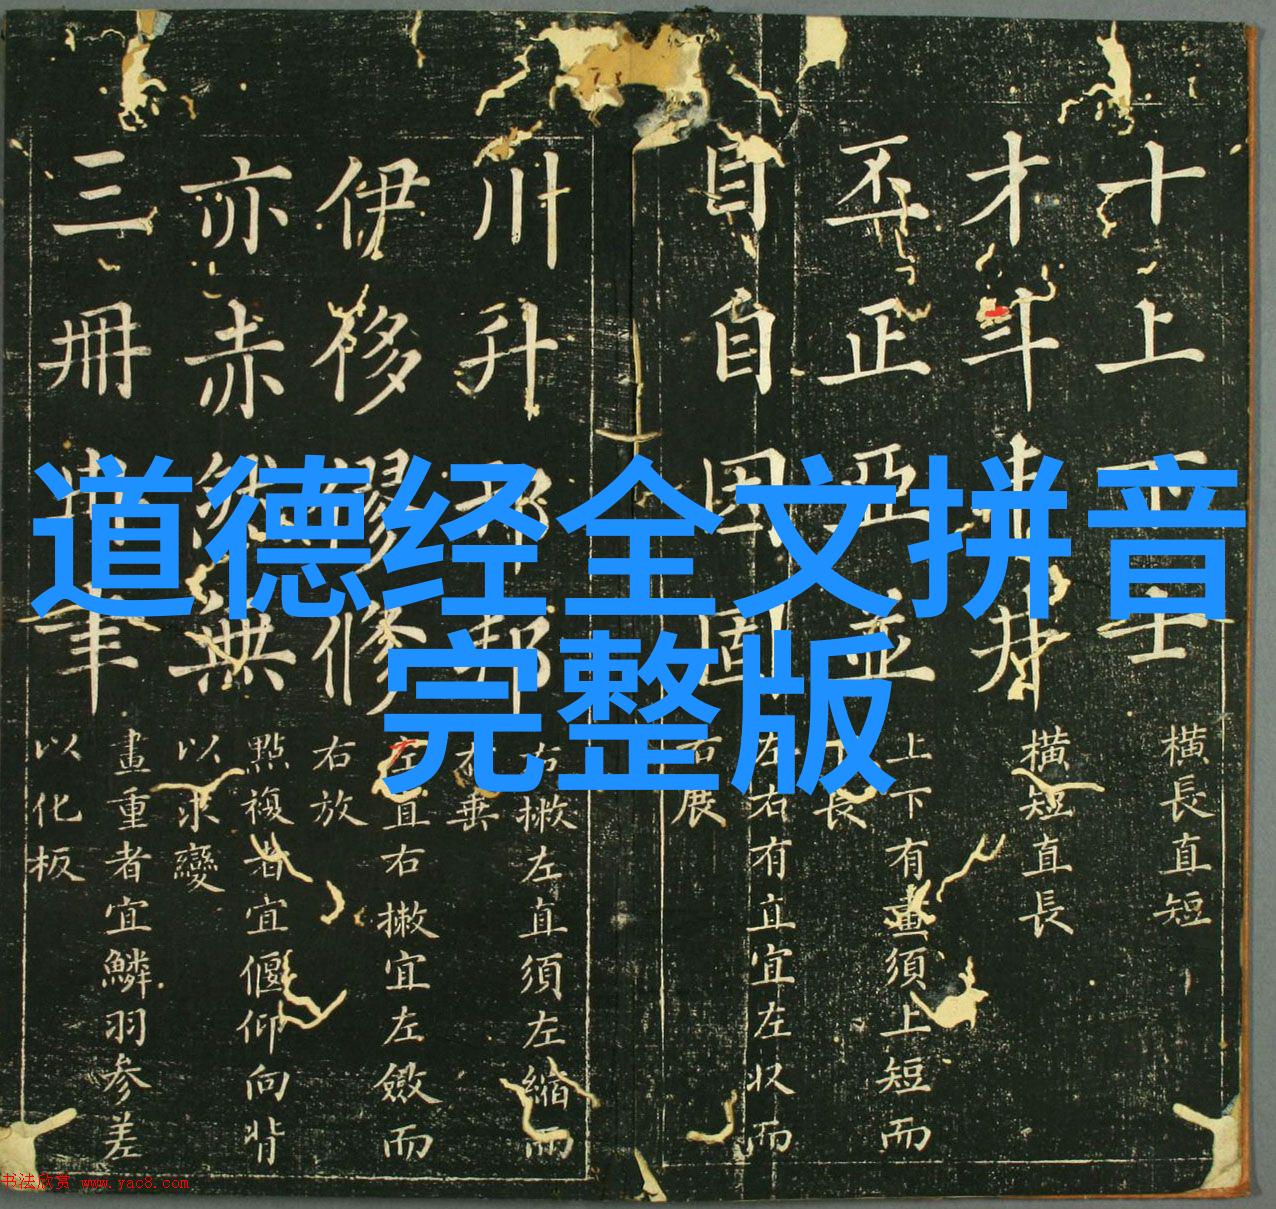 道德经全文拼音
完整版
十上士
橫長直短
才斗井
橫短直長
丕正亞並
上下有畫須上短而
下長
目自因固
左右有直宜左收而
右展
川升邢邦
右撇左直須左縮而
右垂
伊侈修
左直右撇宜左斂而
右放
亦赤然無
點複者宜偃仰向背
以求變
三冊聿
畫重者宜鱗羽參差
以化板
书法欣赏 www.yac8.com